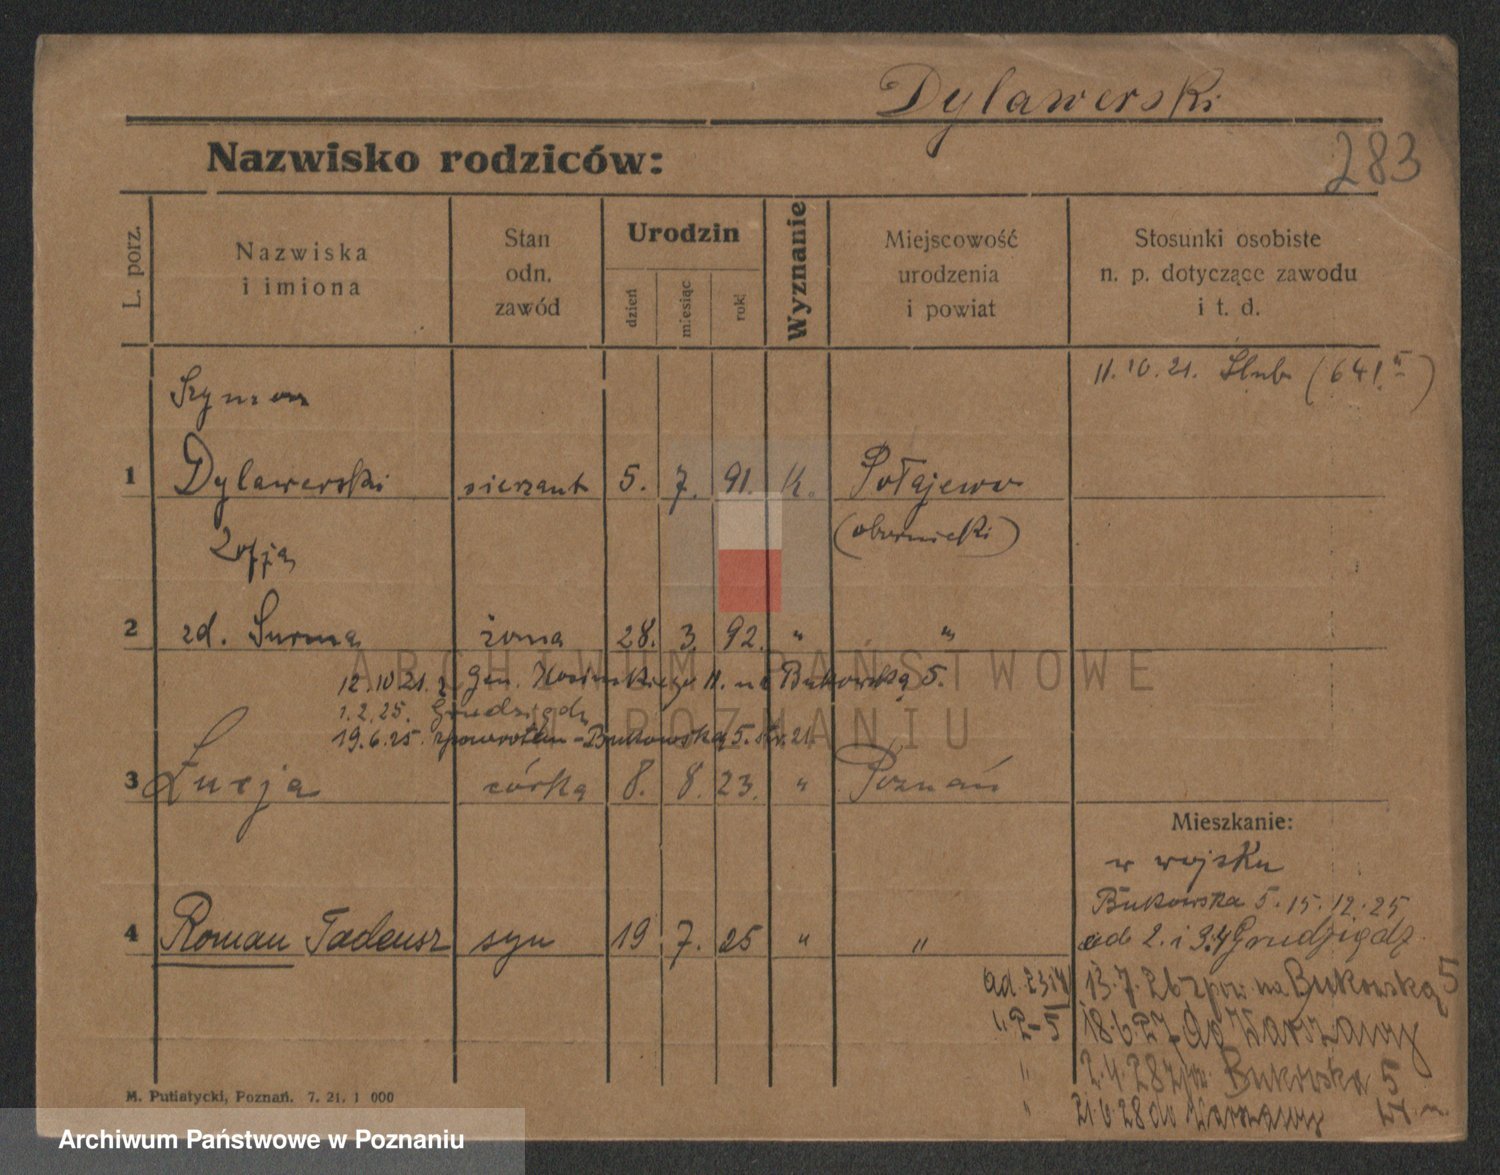 Dylawerski
283
Nazwisko rodziców:
L. porz.
Nazwiska
i imiona
Stan
odn.
zawód
Urodzin
dzień
miesiąc
rok
Wyznanie
Miejscowość
urodzenia
i powiat
Stosunki osobiste
n. p. dotyczące zawodu
i t. d.
11. 10. 21. Ślub (641
Szymon
1 Dylawerski sierżant 5. 7. 91. k. Połajewo
(obornicki)
Zofja
2 zd. Surma żona 28. 3. 92. " "
12.10 21. z Gen. Kosińskiego 11. na Bukowską 5.
1. 2. 25. Grudziądz
19. 6. 25. zpowrotem - Bukowska 5. 21.
3 Łucja córka 8. 8. 23. " Poznań
Mieszkanie:
w wojsku
Bukowska 5. 15. 12. 25
4 Roman Tadeusz syn 19 7. 25 " "
ad 2. i 3.4 Grudziądz
ad. 13. 7. 26 zpow na Bukowską 5
" 2-5 18. 6 27 do Warszawy
" 2. 4. 28 Bukowska 5
" 21 6 28 do Warszawy
M. Putiatycki, Poznań. 7. 21. 1 000
ARCHIWUM PAŃSTWOWE
W POZNANIU
Archiwum Państwowe w Poznaniu